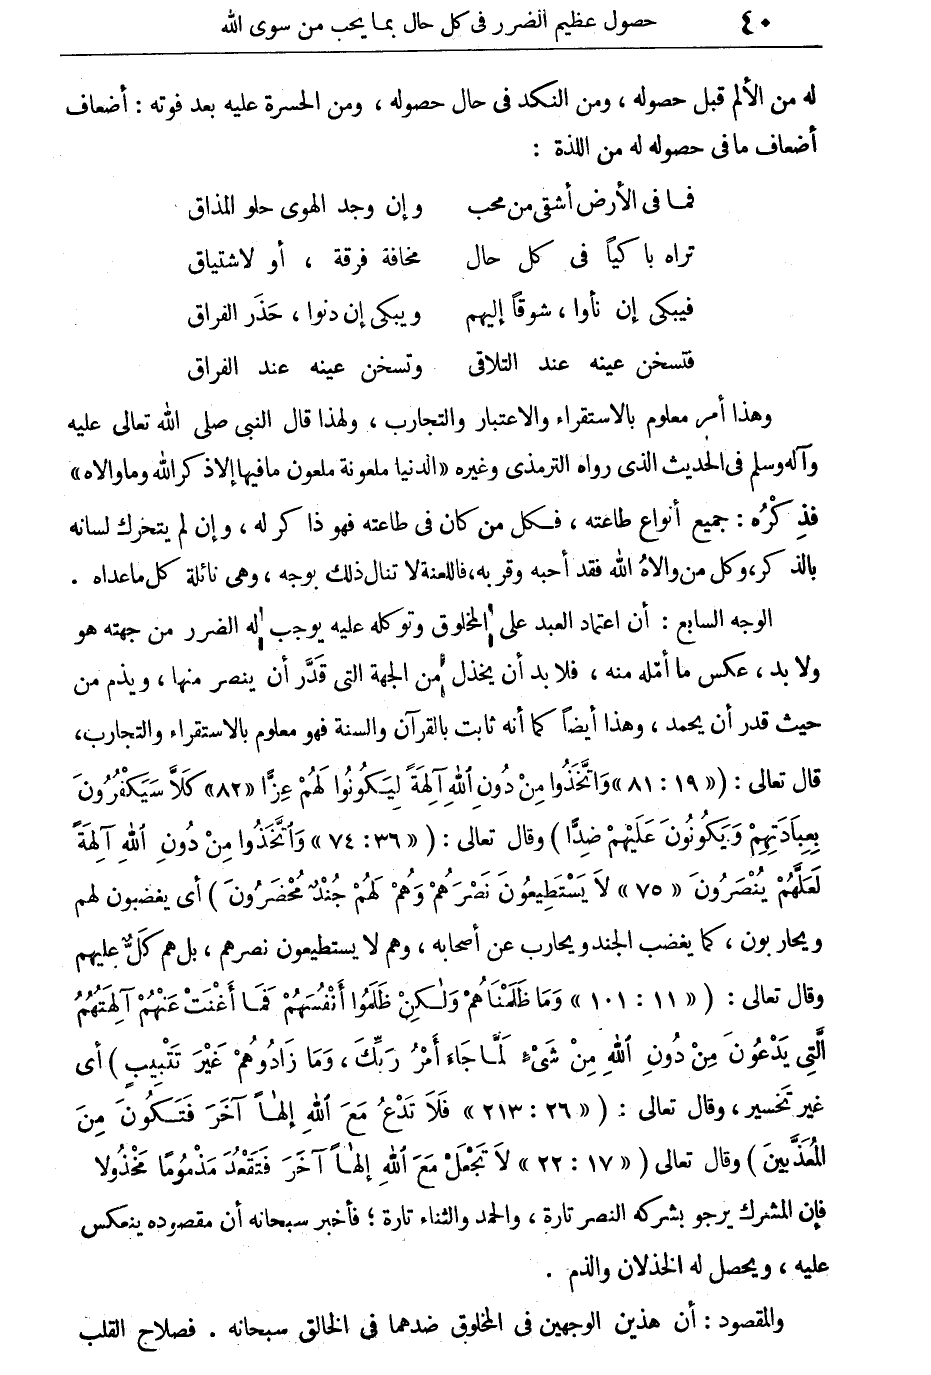 ٤٠ حصول عظيم الضرر فى كل حال بما يحب من سوى الله
له من الألم قبل حصوله ، ومن النكد فى حال حصوله ، ومن الحسرة عليه بعد فوته : أضعاف
أضعاف ما فى حصوله له من اللذة :
فما فى الأرض أشقى من محب وإن وجد الهوى حلو المذاق
تراه باكياً فى كل حال مخافة فرقة ، أو لاشتياق
فيبكى إن نأوا ، شوقاً إليهم ويبكى إن دنوا ، حَذَر الفراق
فتسخن عينه عند التلاقى وتسخن عينه عند الفراق
وهذا أمر معلوم بالاستقراء والاعتبار والتجارب ، ولهذا قال النبى صلى الله تعالى عليه
وآله وسلم فى الحديث الذى رواه الترمذى وغيره «الدنيا ملعونة ملعون ما فيها إلا ذكر الله وما والاه»
فذِكْرُه : جميع أنواع طاعته ، فكل من كان فى طاعته فهو ذاكر له ، وإن لم يتحرك لسانه
بالذكر، وكل من والاهُ الله فقد أحبه وقربه، فاللعنة لا تنال ذلك بوجه ، وهى نائلة كل ما عداه .
الوجه السابع : أن اعتماد العبد على المخلوق وتوكله عليه يوجب له الضرر من جهته هو
ولا بد ، عكس ما أمّله منه ، فلا بد أن يخذل من الجهة التى قَدَّر أن ينصر منها ، ويذم من
حيث قدر أن يحمد ، وهذا أيضاً كما أنه ثابت بالقرآن والسنة فهو معلوم بالاستقراء والتجارب،
قال تعالى : ( « ١٩ : ٨١ » وَاتَّخَذُوا مِنْ دُونِ اللهِ آلِهَةً لِيَكُونُوا لَهُمْ عِزًّا «٨٢» كَلاَّ سَيَكْفُرُونَ
بِعِبَادَتِهِمْ وَيَكُونُونَ عَلَيْهِمْ ضِدًّا ) وقال تعالى : ( « ٣٦ : ٧٤ » وَاتَّخَذُوا مِنْ دُونِ اللهِ آلِهَةً
لَعَلَّهُمْ يُنْصَرُونَ « ٧٥ » لاَ يَسْتَطِيعُونَ نَصْرَهُمْ وَهُمْ لَهُمْ جُنْدٌ مُحْضَرُونَ ) أى يغضبون لهم
ويحاربون ، كما يغضب الجند ويحارب عن أصحابه ، وهم لا يستطيعون نصرهم ، بل هم كَلٌّ عليهم
وقال تعالى : ( « ١١ : ١٠١ » وَمَا ظَلَمْنَاهُمْ وَلٰكِنْ ظَلَمُوا أَنْفُسَهُمْ فَمَا أَغْنَتْ عَنْهُمْ آلِهَتُهُمُ
الَّتِي يَدْعُونَ مِنْ دُونِ اللهِ مِنْ شَىْءٍ لَمَّا جَاءَ أَمْرُ رَبِّكَ ، وَمَا زَادُوهُمْ غَيْرَ تَتْبِيبٍ ) أى
غير تخسير ، وقال تعالى : ( « ٢٦ : ٢١٣ » فَلاَ تَدْعُ مَعَ اللهِ إلٰهاً آخَرَ فَتَكُونَ مِنَ
الْمُعَذَّبِينَ ) وقال تعالى ( « ١٧ : ٢٢ » لاَ تَجْعَلْ مَعَ اللهِ إلٰهاً آخَرَ فَتَقْعُدَ مَذْمُومًا مَخْذُولا
فإن المشرك يرجو بشركه النصر تارة ، والحمد والثناء تارة ؛ فأخبر سبحانه أن مقصوده ينعكس
عليه ، ويحصل له الخذلان والذم .
والمقصود : أن هذين الوجهين فى المخلوق ضدهما فى الخالق سبحانه . فصلاح القلب